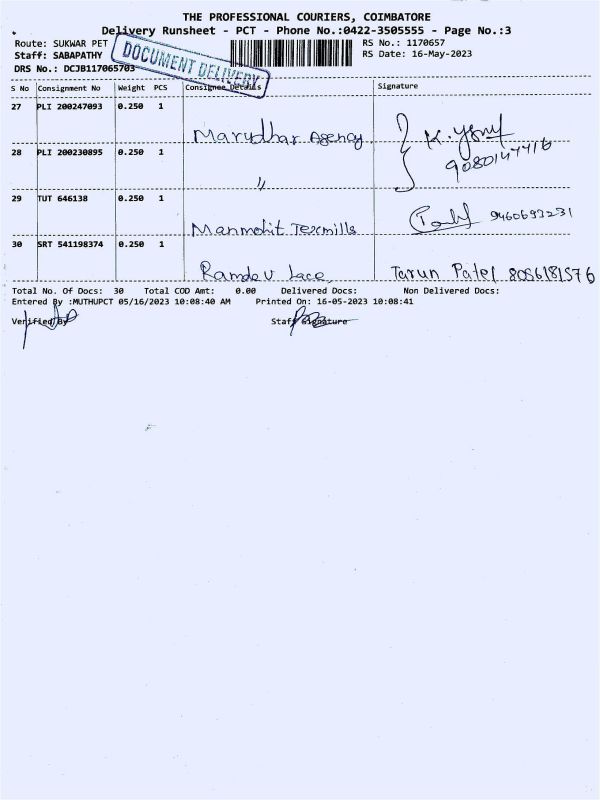 THE PROFESSIONAL COURIERS, COIMBATORE
Delivery Runsheet - PCT - Phone No.:0422-3505555 - Page No.:3
Route: SUKWAR PET RS No.: 1170657
Staff: SABAPATHY RS Date: 16-May-2023
DRS No.: DCJB117065703
DOCUMENT DELIVERY
S No Consignment No Weight PCS Consignee Details Signature
27 PLI 200247093 0.250 1
Marudhar Agency
28 PLI 200230895 0.250 1
9080147416
"
29 TUT 646138 0.250 1
Manmohit Texmills 9460693231
30 SRT 541198374 0.250 1
Ramdev Lace, Tarun Patel 8056181576
Total No. Of Docs: 30 Total COD Amt: 0.00 Delivered Docs: Non Delivered Docs:
Entered By :MUTHUPCT 05/16/2023 10:08:40 AM Printed On: 16-05-2023 10:08:41
Verified By Staff Signature